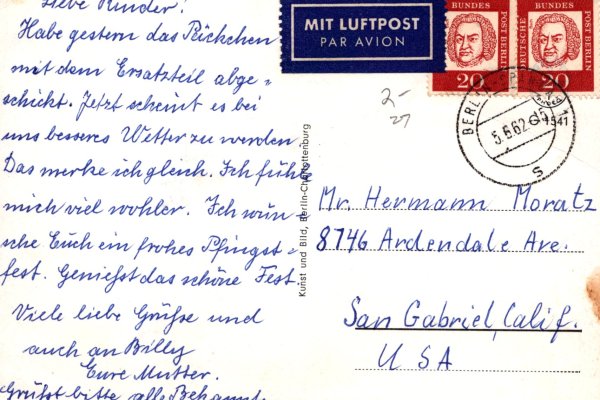 Liebe Kinder!
Habe gestern das Päckchen
mit dem Ersatzteil abge-
schickt. Jetzt scheint es bei
uns besseres Wetter zu werden
Das merke ich gleich. Ich fühle
mich viel wohler. Ich wün-
sche Euch ein frohes Pfingst-
fest. Genießt das schöne Fest.
Viele liebe Grüße und
auch an Billy
Eure Mutter.
Grüßt bitte alle Bekannt.
Kunst und Bild, Berlin-Charlottenburg
MIT LUFTPOST
PAR AVION
BUNDES
POST BERLIN
20
DEUTSCHE
BUNDES
POST BERLIN
20
2-
27
BERLIN
5.6.62
1541
S
Mr. Hermann Moratz
8746 Ardendale Ave.
San Gabriel, Calif.
USA